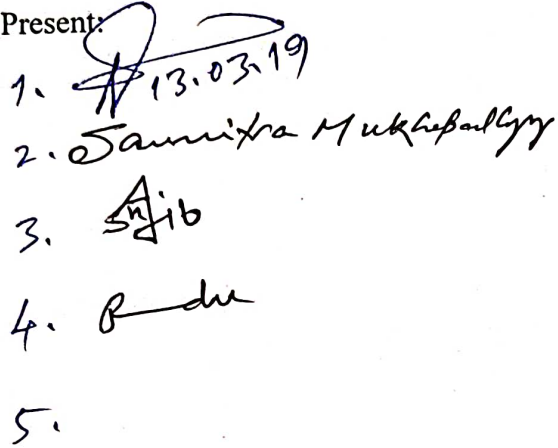 Present:
1. 13.03.19
2. Saumitra Mukhopadhyay
3. Snjib
4.
5.